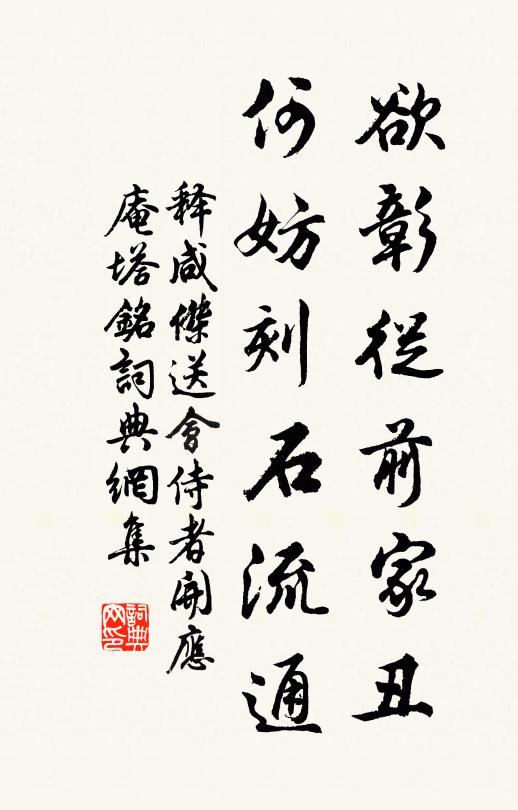 欲彰從前家丑
何妨刻石流通
释咸傑送會侍者開應
庵塔銘詞典網集
詞典
网印